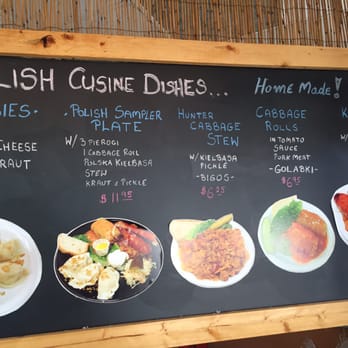 LISH CUSINE DISHES...
HOME MADE!
IES.
CHEESE
RAUT
. POLISH SAMPLER
PLATE
W/ 3 PIEROGI
1 CABBAGE ROLL
POLSKA KIELBASA
STEW
KRAUT & PICKLE
$11.95
HUNTER
CABBAGE
STEW
W/ KIELBASA
PICKLE
-BIGOS-
CABBAGE
ROLLS
IN TOMATO
SAUCE
PORK MEAT
-GOLABKI-
$6.95
K